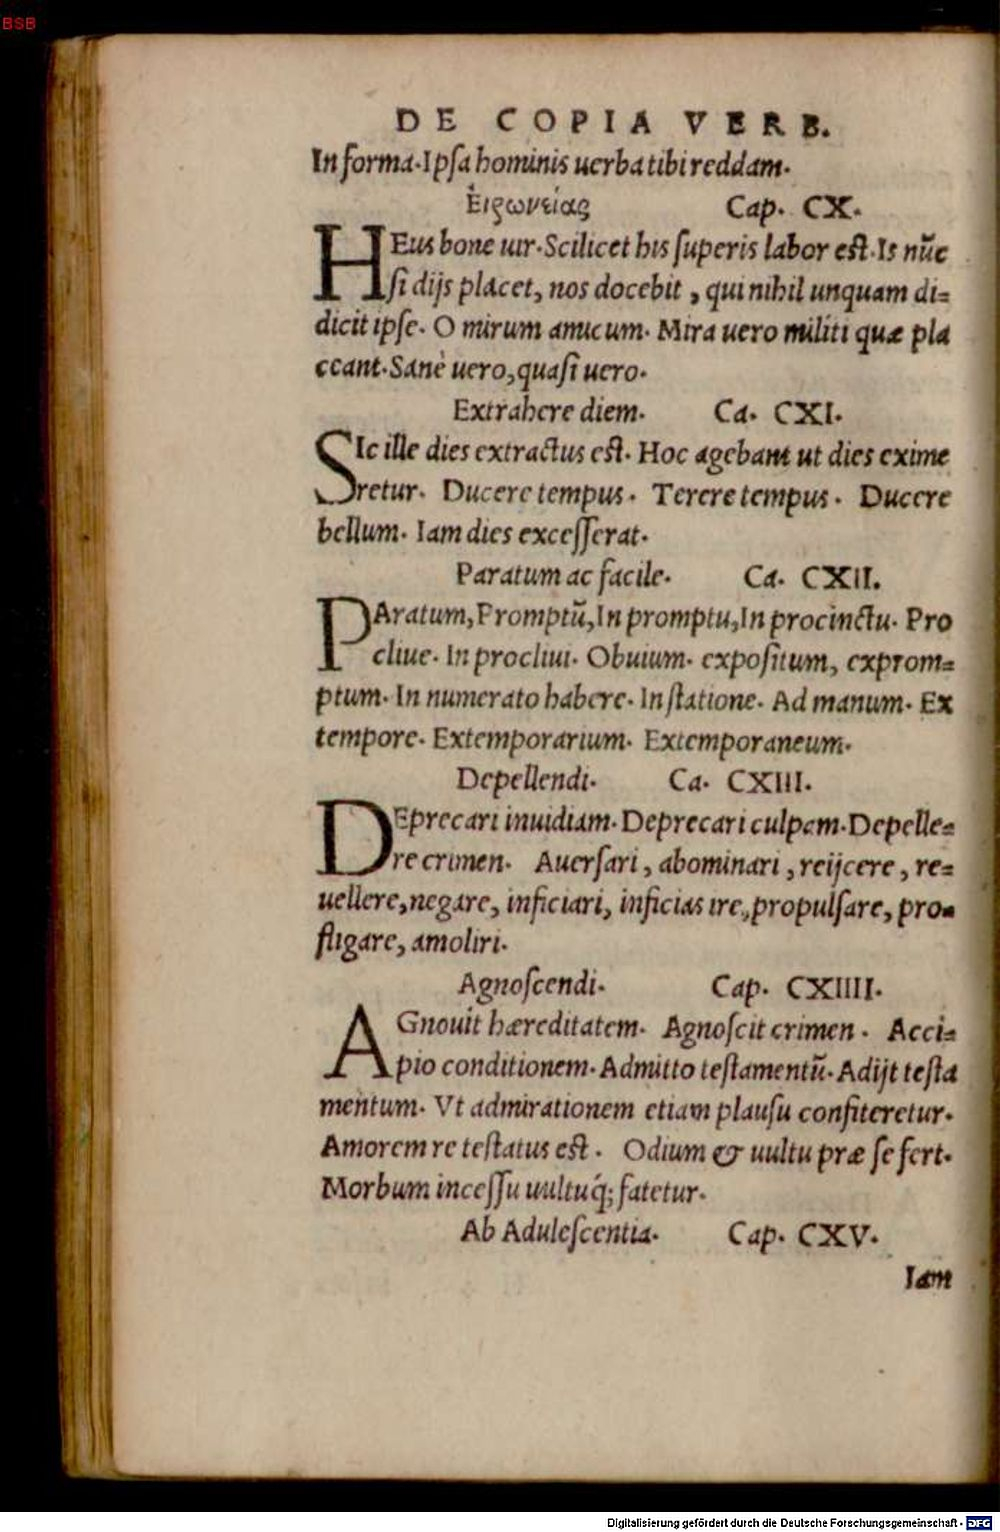 BSB
DE COPIA VERB.
In forma. Ipsa hominis uerba tibi reddam.
Εἰρωνείας Cap. CX.
HEus bone uir. Scilicet his superis labor est. Is nũc
si dijs placet, nos docebit, qui nihil unquam di=
dicit ipse. O mirum amicum. Mira uero militi quæ pla
ceant. Sanè uero, quasi uero.
Extrahere diem. Ca. CXI.
SIc ille dies extractus est. Hoc agebant ut dies exime
retur. Ducere tempus. Terere tempus. Ducere
bellum. Iam dies excesserat.
Paratum ac facile. Ca. CXII.
PAratum, Promptũ, In promptu, In procinctu. Pro
cliue. In procliui. Obuium. expositum, exprom=
ptum. In numerato habere. In statione. Ad manum. Ex
tempore. Extemporarium. Extemporaneum.
Depellendi. Ca. CXIII.
DEprecari inuidiam. Deprecari culpam. Depelle=
re crimen. Auersari, abominari, reijcere, re=
uellere, negare, inficiari, inficias ire, propulsare, pro=
fligare, amoliri.
Agnoscendi. Cap. CXIIII.
AGnouit hæreditatem. Agnoscit crimen. Acci=
pio conditionem. Admitto testamentũ. Adijt testa
mentum. Vt admirationem etiam plausu confiteretur.
Amorem re testatus est. Odium & uultu præ se fert.
Morbum incessu uultuq́; fatetur.
Ab Adulescentia. Cap. CXV.
Iam
Digitalisierung gefördert durch die Deutsche Forschungsgemeinschaft - DFG